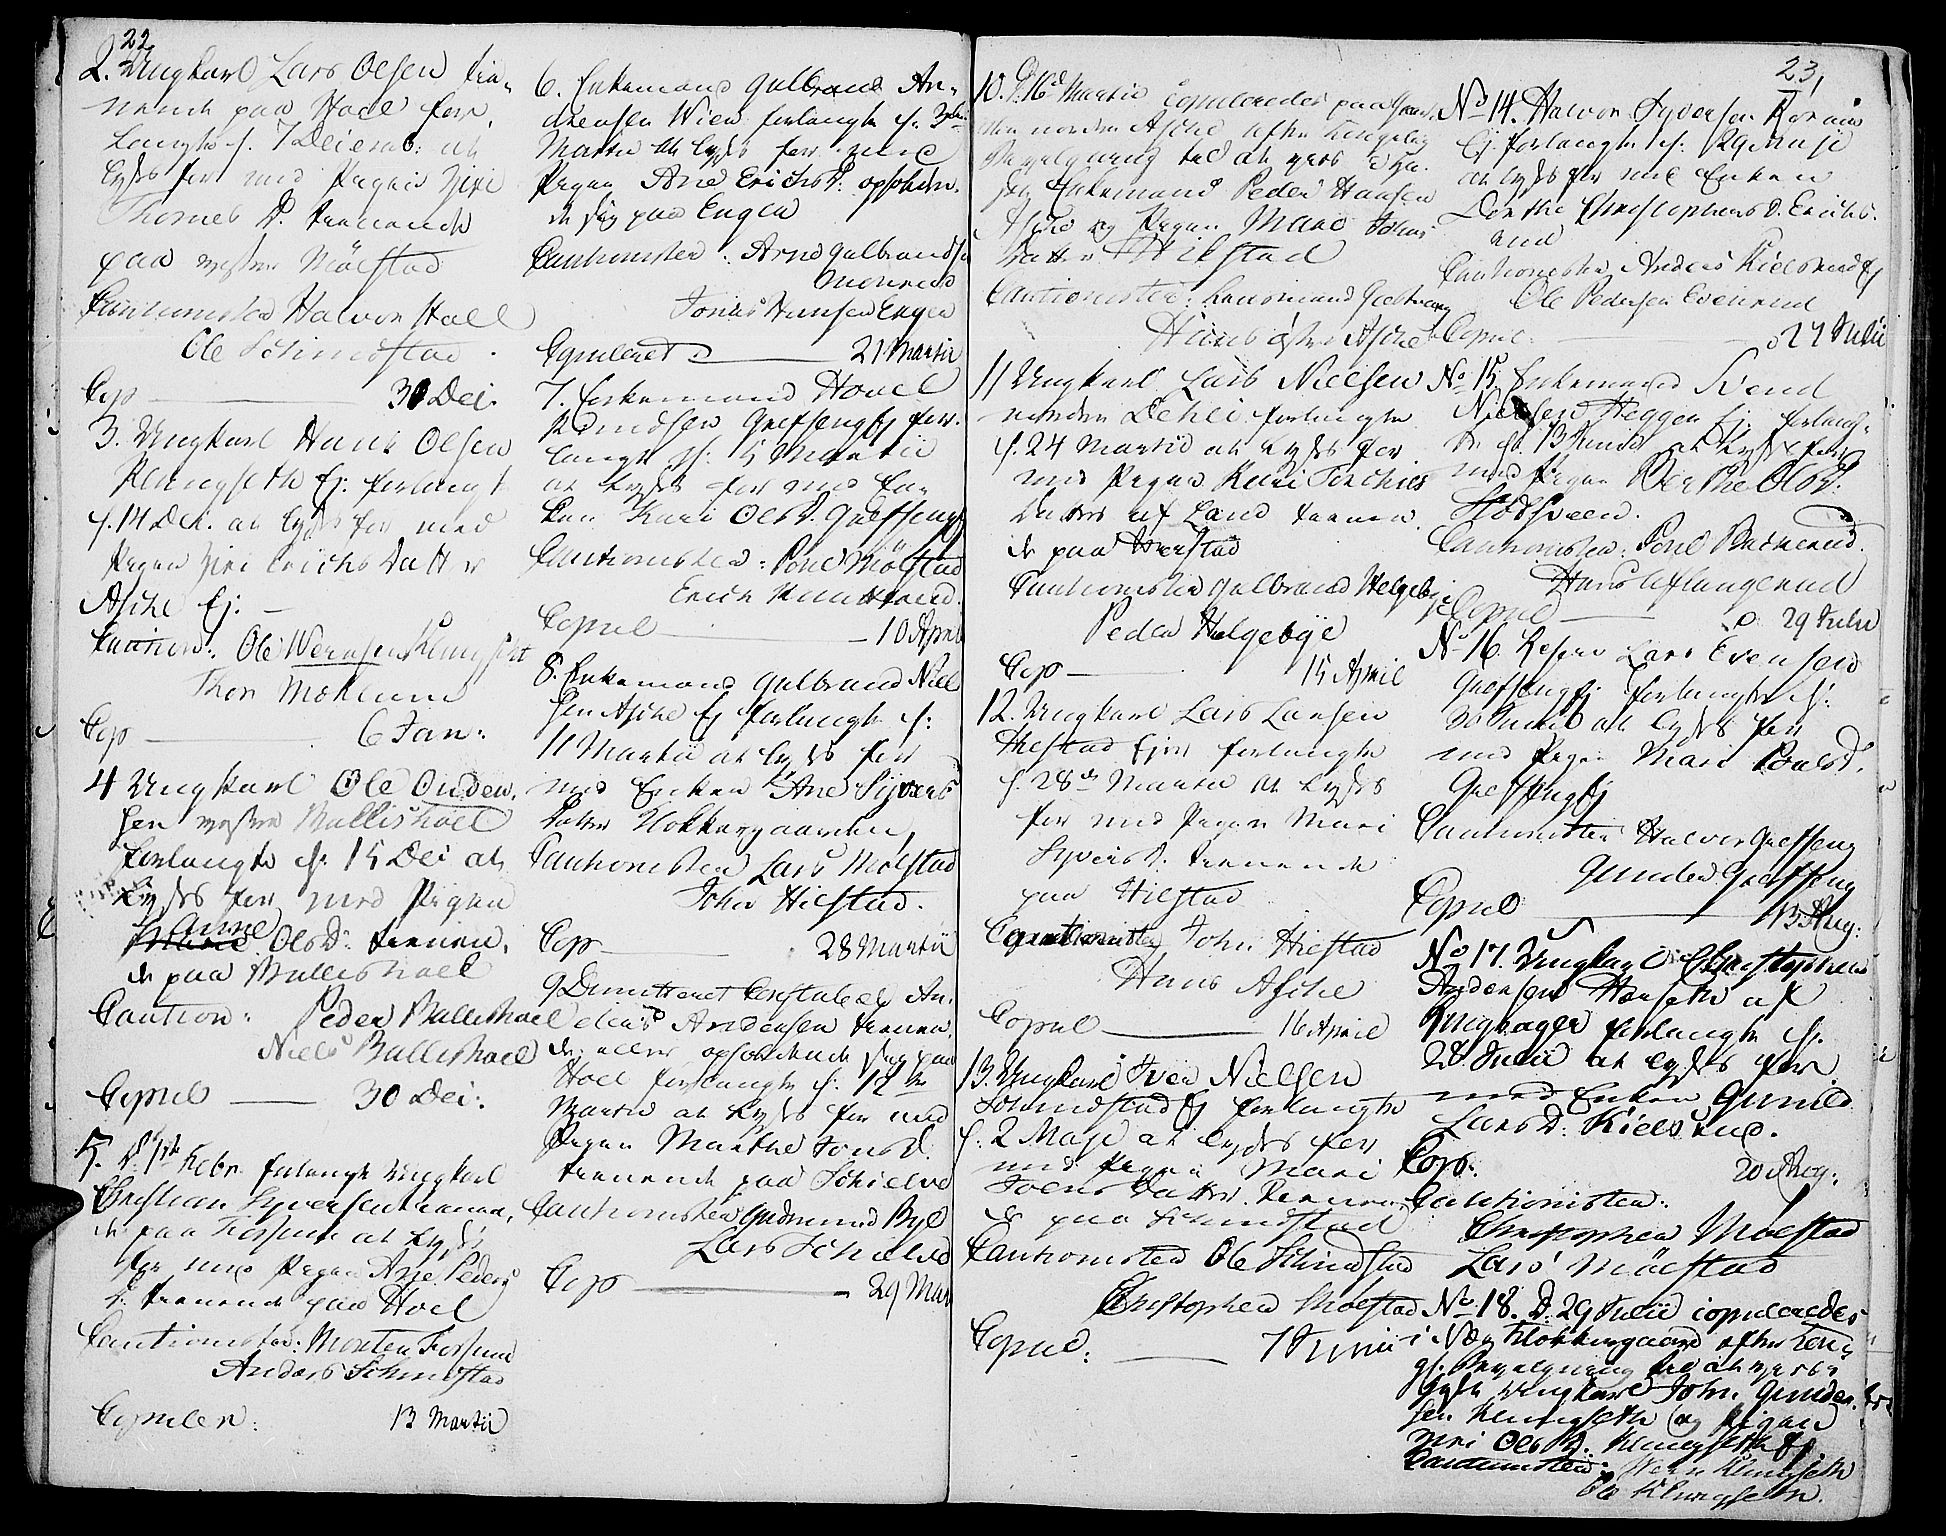 22
2. Ungkarl Lars Olsen tie-
nende paa Hoel for-
langte d. 7 Decemb: at
lyses for med Pigen Siri
Thornes D. tienende
paa vestre Möestad
Cautionister Halvor Hoel
Ole Schinstad
Cop 30 Dec.
3. Ungkarl Hans Olsen
Klungseth Ej: forlangt
d. 14 Dec. at lyses for med
Pigen Siri Erichs Datter
Asche Ej: -
Caution: Ole Wernsen Klungseth
Thor Moklund
Cop 6 Jan:
4 Ungkarl Ole Ouden-
sen vestre Ballishoel
forlangte d. 15 Dec at
lyses for med Pigen
Anne
Marie Ols D. tienen-
de paa Ballishoel
Caution: Peder Ballishoel
Niels Ballishoel
Copul 30 Dec:
5. D. 1ste Febr. forlangte Ungkarl
Christian Syversen tienen-
de paa Fossum at lyses
for med Pigen Ane Peders
D. tienende paa Hoel
Cautionister: Morten Fossum
Anders Schinstad
Copuleret: 13 Martii
6. Enkemand Gulbrand An-
dersen Wien forlangte d. 3die
Martii at lyses for med
Pigen Ane Erichs D. ophold-
de sig paa Engen
Cautionister: Arne Gulbrands
Onsrud
Jonas Hansen Engen
Copuleret 21 Martii
7. Enkemand Hovel
Knudsen Grefseng Ej for-
langte d: 5 Martii
at lyses for med En-
ken Kari Ols D. Grefseng
Cautionister: Poul Möestad
Erich
Copul 10 April
8. Enkemand Gulbrand Niel
sen Asche Ej forlangte d:
11 Martii at lyses for
med Enken Ane Syvers
Datter Klokkergaarden
Cautionister Lars Möestad
John Hiestad.
Cop 28 Martii
9 Dimitteret Constabel An-
ders Andersen tienen-
de eller opholdende sig paa
Hoel forlangte d. 12te
Martii at lyses for med
Pigen Marthe Jons D.
tienende paa Schielve
Cautionister Gudmund Bye
Lars Schielve
Cop 29 Mar
23
10. D. 16d Martii copuleredes paa Gaar-
den nordre Asche efter Kongelig
Bevilgning til at vies i Hu-
set Enkemand Peder Hansen
Asche og Pigen Mari Johns
Datter Hiestad
Cautionister: Lensmand Grefseng
Hans östre Asche
11 Ungkarl Lars Nielsen
nordre Dehlei forlangte
d. 24 Martii at lyses for
med Pigen Kari Torchils
Datter af Land tienen-
de paa Hverstad
Cautionister Gulbrand Helgebye
Peder Helgebye
Cop 15 April
12. Ungkarl Lars Larsen
Hiestad Ejer forlangte
d. 28de Martii at lyses
for med Pigen Mari
Syvers D. tienende
paa Hiestad
Cautionister John Hiestad
Hans Asche
Copul 16 April
13. Ungkarl Iver Nielsen
Schinstad Ej forlangte
d. 2 Maji at lyses for
med Pigen Mari
Joens Datter tienen-
de paa Schinstad
Cautionister Ole Schinstad
Christopher Moestad
Copul: 7 Junii
No 14. Halvor Syversen
Ej forlangte d: 29 Maji
at lyses for med Enken
Dorthe Christophers D. Erichs-
rud
Cautionister Anders Kielsrud Ej
Ole Pedersen Evenrud
Copul: 27 Julii
No 15. Enkemand Svend
Nielsen Heggen Ej. forlang-
te d. 13 Junii at lyses for
med Pigen Berthe Ols D:
Stadsveen.
Cautionister: Poul Bakerud.
Hans Uflangerud
Copul 29 Julii
No 16. Lars Evensen
Grefseng Ej forlangte d:
30 Junii at lyses for
med Pigen Mari Pouls D.
Grefseng Ej
Cautionister Halvor Grefseng
Gunder Grefseng
Copul 13 Aug:
No 17. Ungkarl Christopher
Andersen Hönseth af
Ringsager forlangte d.
28 Julii at lyses for
med Enken Gunild
Lars D: Kielsrud.
Cop: 20 Aug:
Cautionister:
Christopher Moestad
Lars Möestad
No 18. D: 29 Julii copuleredes
i Næs Klokkergaard efter Kong
gl. Bevilgning til at vies
Ungkarl John Gunder-
sen Klungseth og Pigen
Siri Ols D. Klungseth Ej.
Cautionister: Klungseth
Ole Klungseth.